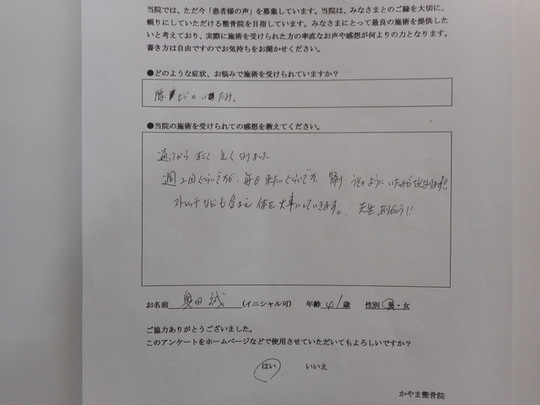 当院では、ただ今「患者様の声」を募集しています。当院は、みなさまとのご縁を大切に、
頼りにしていただける整骨院を目指しています。みなさまにとって最良の施術を提供した
いと考えており、実際に施術を受けられた方の率直なお声や感想が何よりの力となります。
書き方は自由ですのでお気持ちをお聞かせください。
●どのような症状、お悩みで施術を受けられていますか？
いたみ。
●当院の施術を受けられての感想を教えてください。
通ってから すごく 良くなりました
週2回ぐらいですが、毎日来たいぐらいです。 うそのように いたみが なくなります!!
ストレッチなども含まえ 体を大事にしていきます。 先生ありがとう!!
お名前 奥田 誠 (イニシャル可) 年齢 41 歳 性別 男・女
ご協力ありがとうございました。
このアンケートをホームページなどで使用させていただいてもよろしいですか？
はい いいえ
かやま整骨院